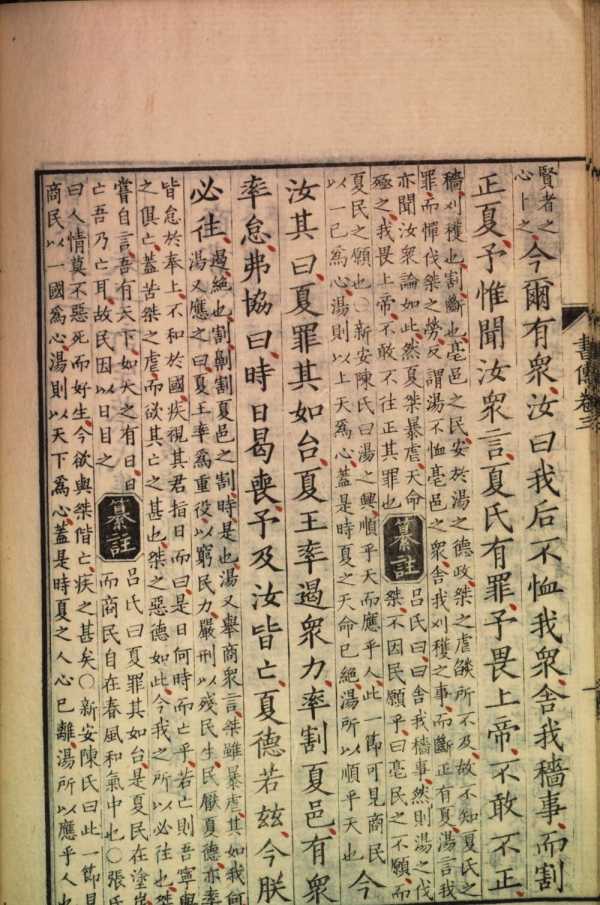 書傳卷三
賢者之
心卜之
今爾有衆汝曰我后不恤我衆舍我穡事而割
正夏予惟聞汝衆言夏氏有罪予畏上帝不敢不正
穡刈穫也割斷也亳邑之民安於湯之德政桀之虐燄所不及故不知夏氏之
罪而憚伐桀之勞反謂湯不恤亳邑之衆舍我刈穫之事而斷正有夏湯言我
亦聞汝衆論如此然夏桀暴虐天命
殛之我畏上帝不敢不往正其罪也
纂註
呂氏曰曰舍我穡事然則湯之伐
桀不因民願乎曰亳民之不願而
夏民之願也○新安陳氏曰湯之興順乎天而應乎人此一節可見商民
以一已爲心湯則以上天爲心蓋是時夏之天命已絕湯所以順乎天也
今
汝其曰夏罪其如台夏王率遏衆力率割夏邑有衆
率怠弗協曰時日曷喪予及汝皆亡夏德若兹今朕
必往
遏絕也割劓割夏邑之割時是也湯又舉商衆言桀雖暴虐其如我何
湯又應之曰夏王率爲重役以窮民力嚴刑以殘民生民厭夏德亦率
皆怠於奉上不和於國疾視其君指日而曰是日何時而亡乎若亡則吾寧與
之俱亡蓋苦桀之虐而欲其亡之甚也桀之惡德如此今我之所以必往也桀
嘗自言吾有天下如天之有日日
亡吾乃亡耳故民因以日目之
纂註
呂氏曰夏罪其如台是夏民在塗炭
而商民自在春風和氣中也○張氏
曰人情莫不惡死而好生今欲與桀偕亡疾之甚矣○新安陳氏曰此一節見
商民以一國爲心湯則以天下爲心蓋是時夏之人心已離湯所以應乎人也